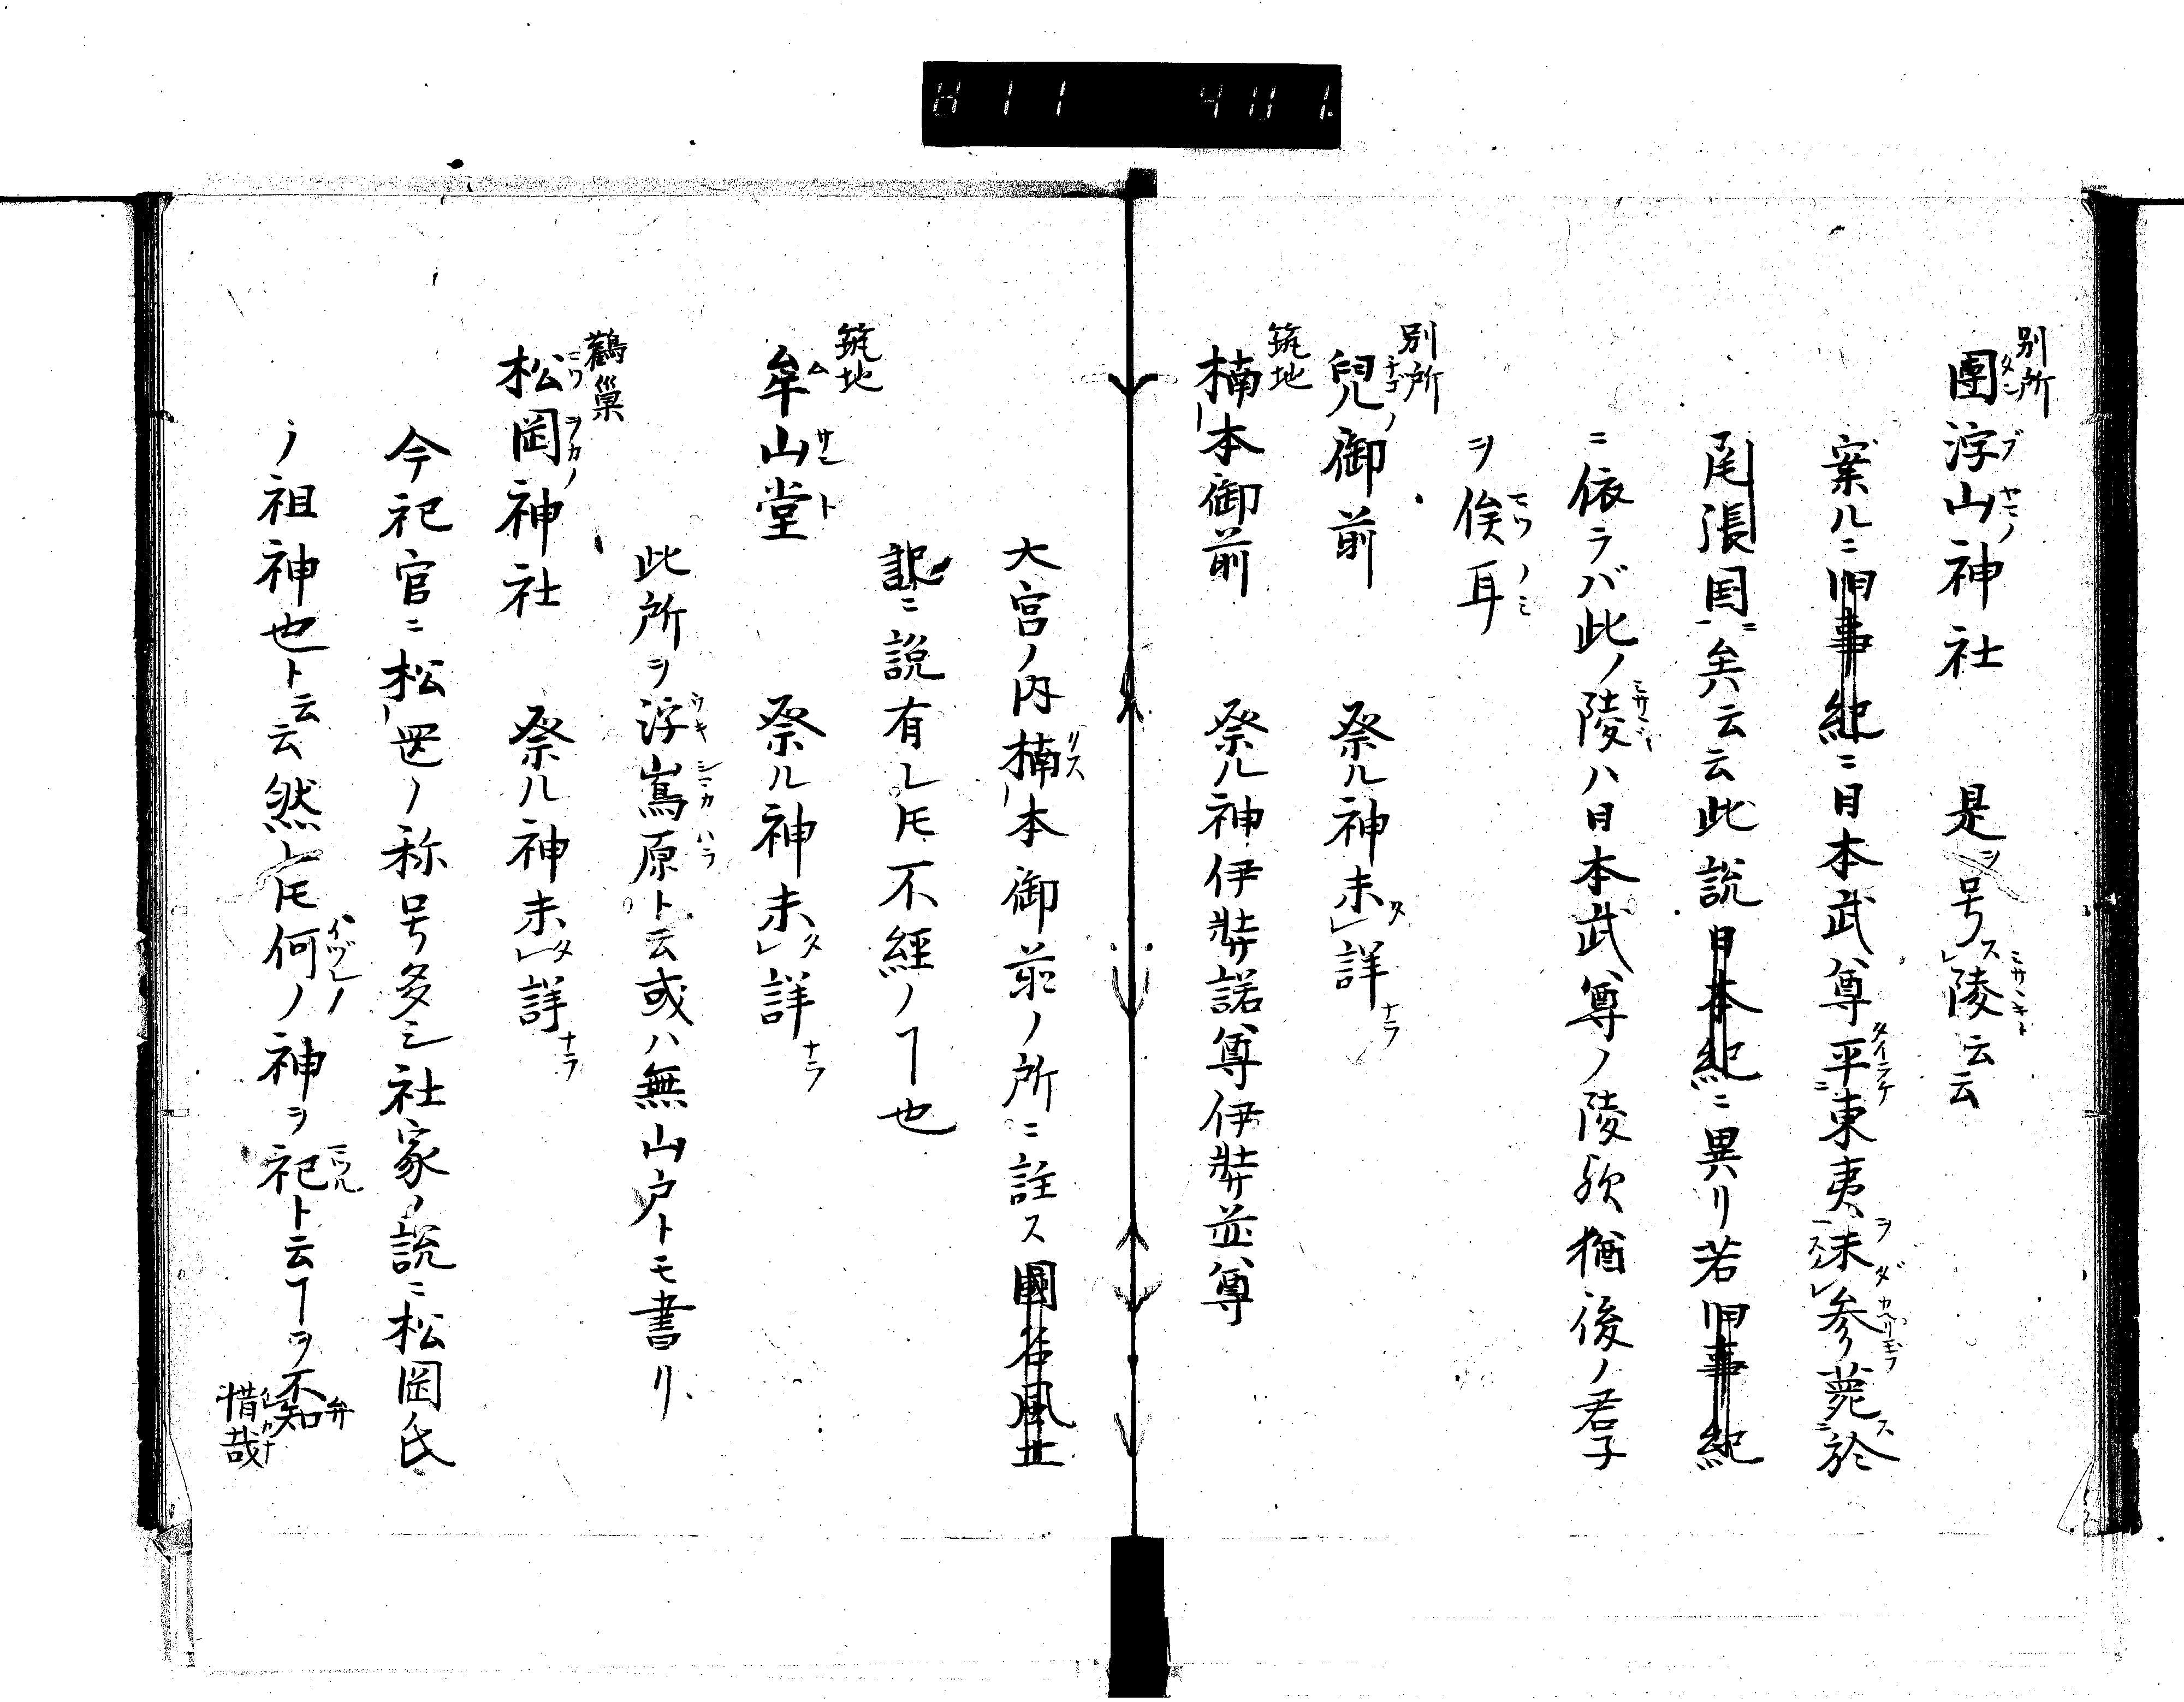 別所
團浮山神社　是ヲ号ス陵云云
案ルニ旧事紀ニ日本武尊平東夷未参薨於
尾張国矣云云此説日本紀ニ異リ若旧事紀
ニ依ラバ此ノ陵ハ日本武尊ノ陵欤猶後ノ君子
ヲ俟耳
別所
兒御前　祭ル神未詳
筑地
楠本御前　祭ル神伊弉諾尊伊弉並尊
大宮ノ内楠本御前ノ所ニ註ス國名風土
記ニ説有レ𪜈不經ノヿ也
筑地
牟山堂　祭ル神未詳
此所ヲ浮嶌原ト云或ハ無山戸トモ書リ
鸛巣
松岡神社　祭ル神未詳
今祀官ニ松岡ノ称号多シ社家ノ説ニ松岡氏
ノ祖神也ト云云然𪜈何ノ神ヲ祀ト云ヿヲ不知
弁
惜哉